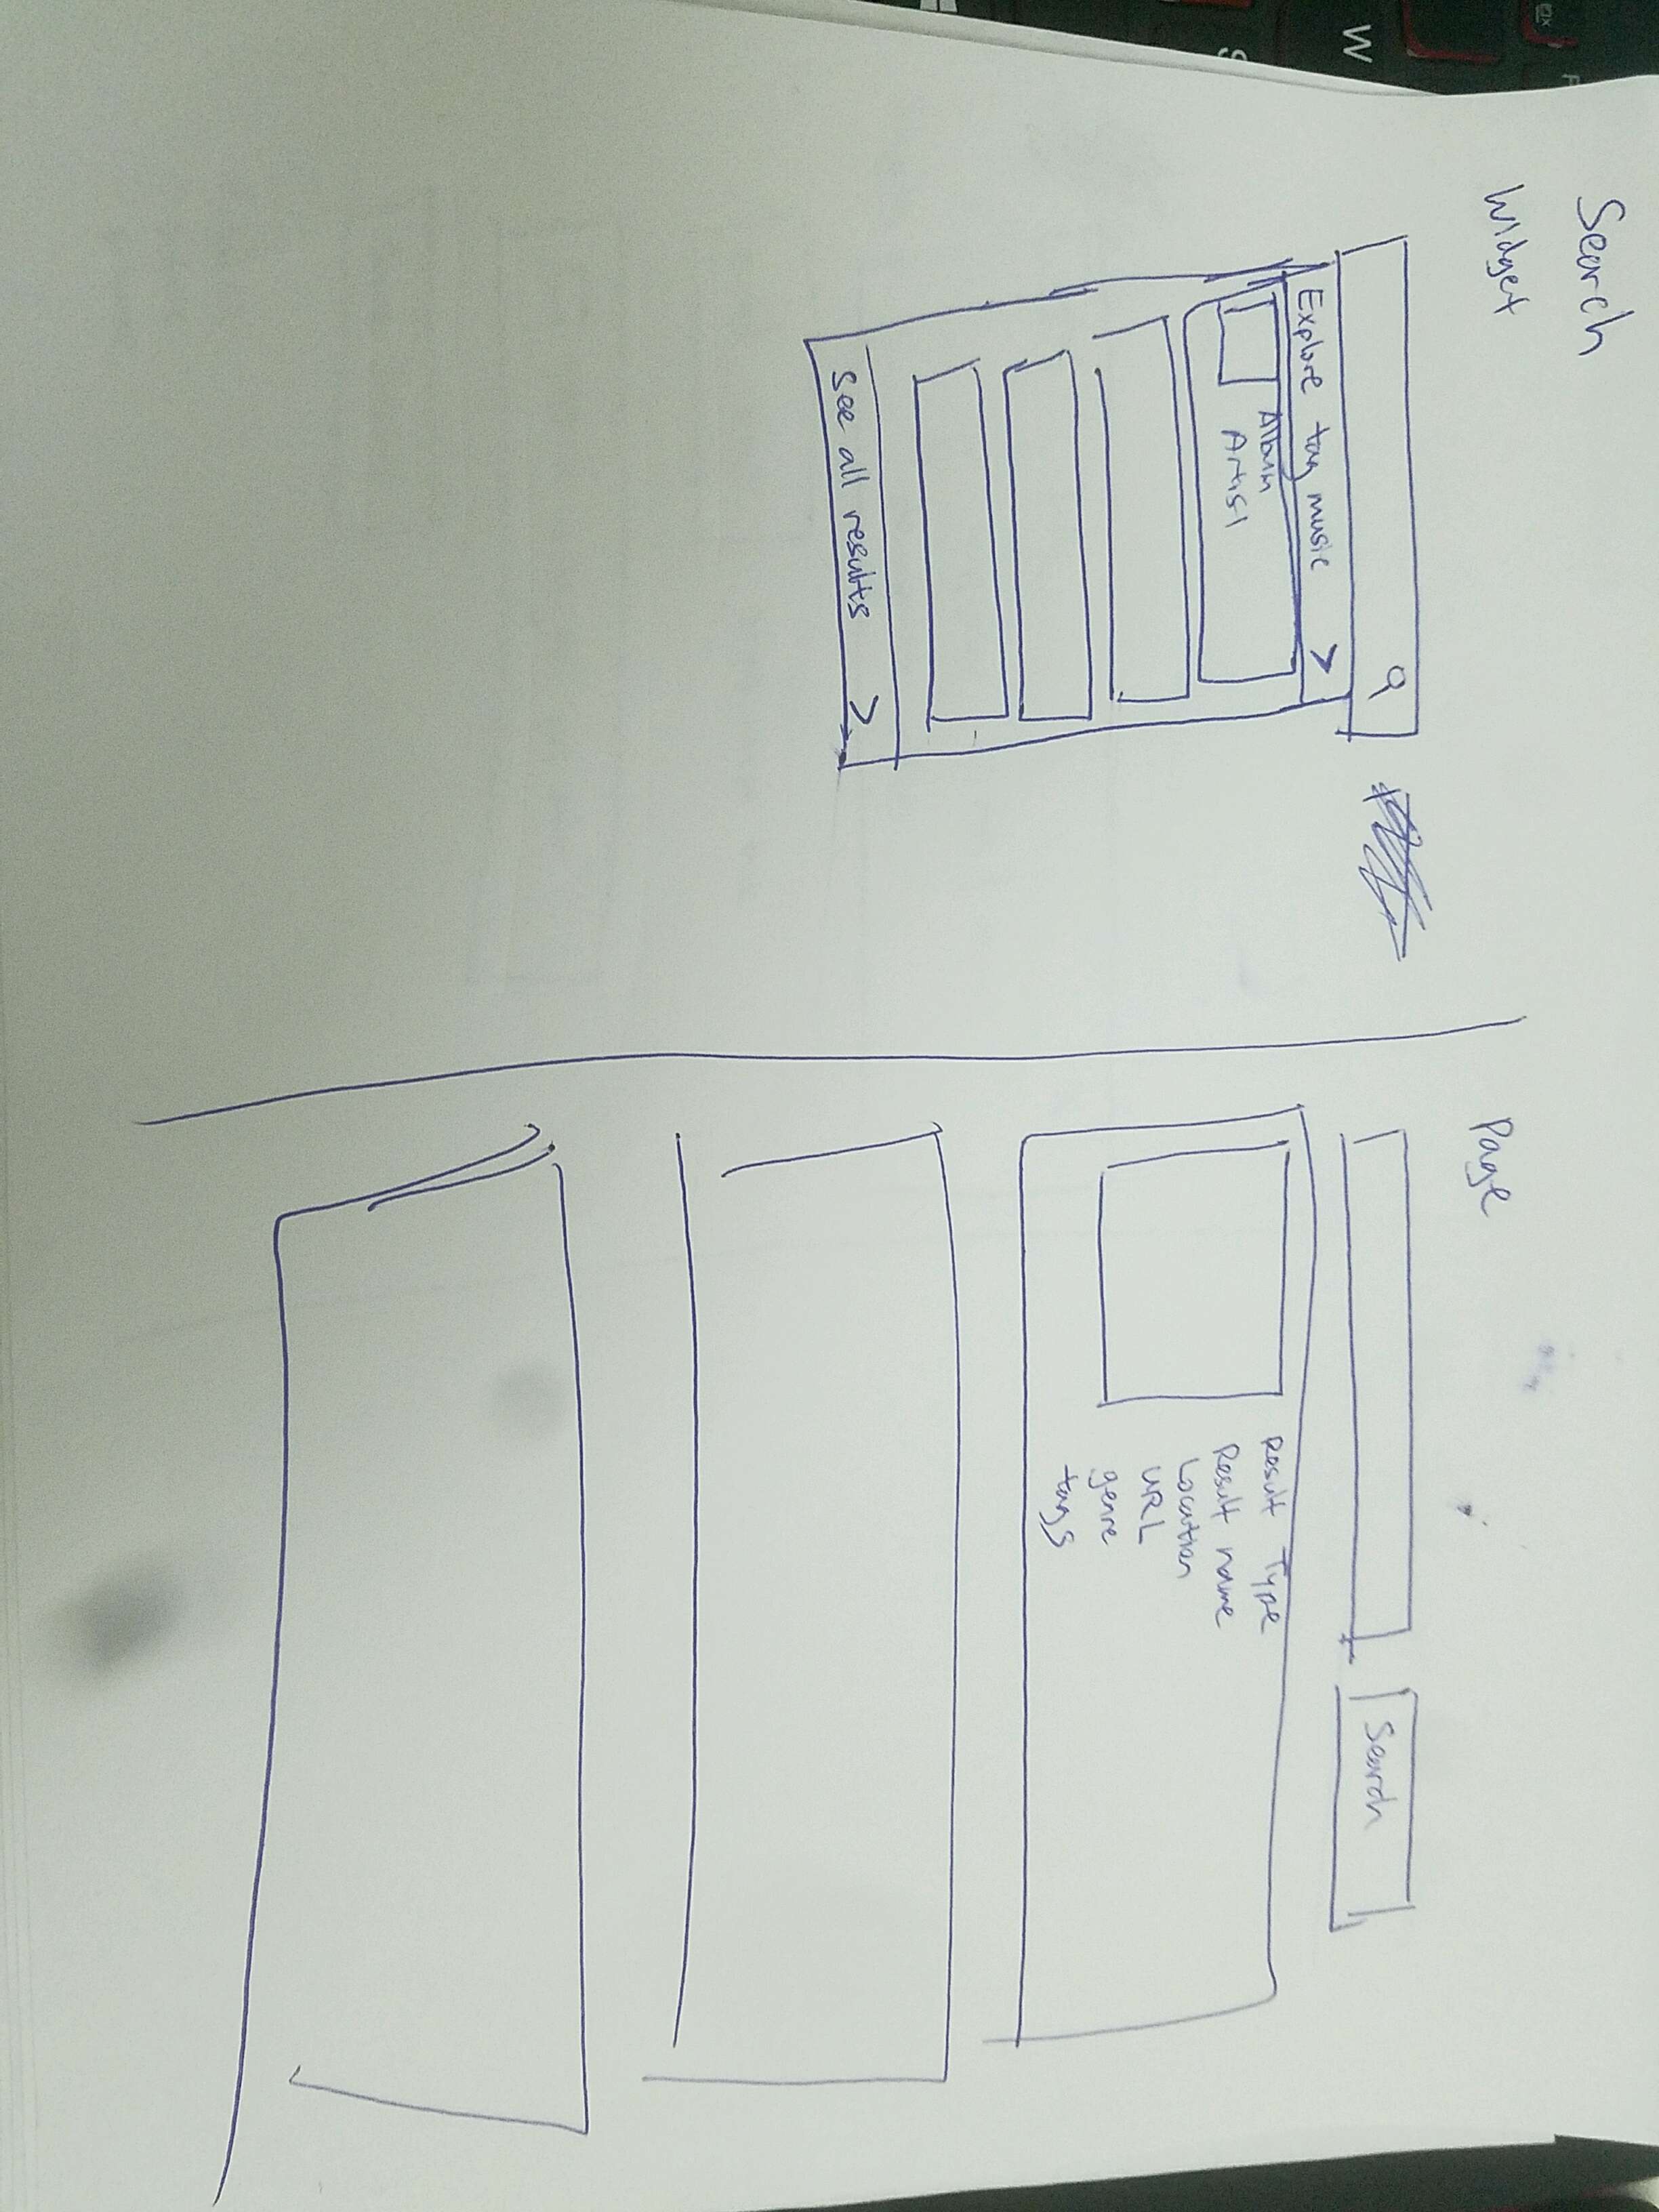 Search
Widget
Explore tag music >
Album
Artist
See all results >
Page
Search
Result Type
Result name
Location
URL
genre
tags
W
S
F